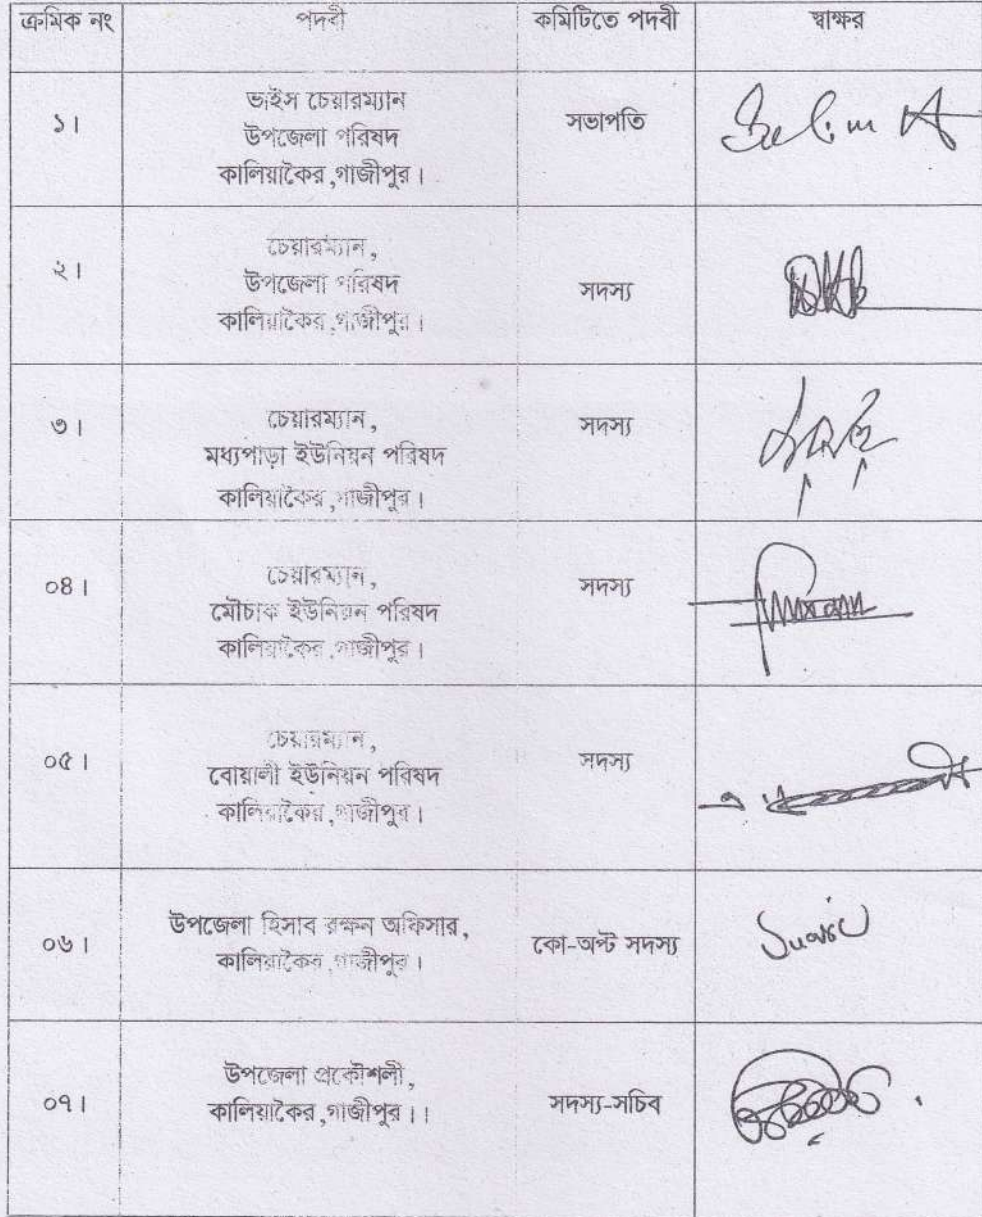 ক্রমিক নং পদবী কমিটিতে পদবী স্বাক্ষর
১। ভাইস চেয়ারম্যান
উপজেলা পরিষদ
কালিয়াকৈর,গাজীপুর। সভাপতি
২। চেয়ারম্যান,
উপজেলা পরিষদ
কালিয়াকৈর,গাজীপুর। সদস্য
৩। চেয়ারম্যান,
মধ্যপাড়া ইউনিয়ন পরিষদ
কালিয়াকৈর,গাজীপুর। সদস্য
০৪। চেয়ারম্যান,
মৌচাক ইউনিয়ন পরিষদ
কালিয়াকৈর,গাজীপুর। সদস্য
০৫। চেয়ারম্যান,
বোয়ালী ইউনিয়ন পরিষদ
কালিয়াকৈর,গাজীপুর। সদস্য
০৬। উপজেলা হিসাব রক্ষন অফিসার,
কালিয়াকৈর,গাজীপুর। কো-অপ্ট সদস্য
০৭। উপজেলা প্রকৌশলী,
কালিয়াকৈর,গাজীপুর।। সদস্য-সচিব